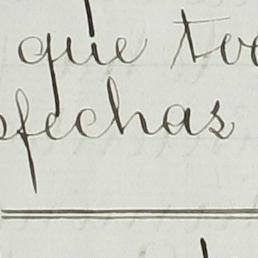 que
fechas